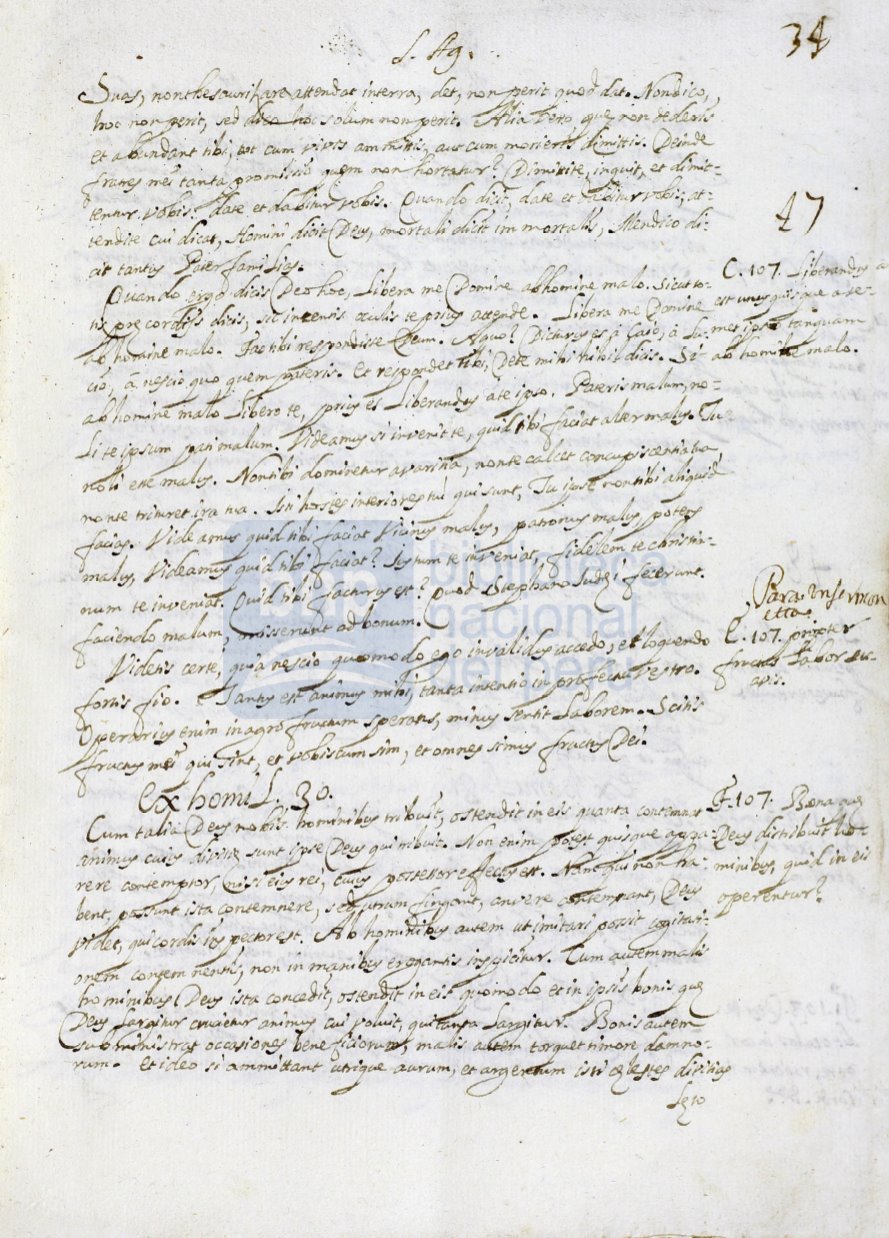 S. Ag.
34
Suas, non thesaurisare attendat in terra, det, non perit quod dat. Non dico,
hoc non perit, sed dico hoc solum non perit. Alia vero quę non dederis
et abundant tibi, aut cum vivis ammittis, aut cum morieris dimittis. Deinde
fratres mei tanta promissio quem non hortatur? Dimitite, inquit, et dimit-
tentur vobis. date et dabitur vobis. Quando dicit, date et dabitur vobis, at-
tendite cui dicat, Homini dicit Deus, mortali dicit immortalis, Mendico di-
cit tantus Pater familias.
47
Quando ergo dicis Deo hoc, Libera me Domine ab homine malo. Sicut to-
tis precordiis dicis, sic intentis oculis te prius attende. Libera me Domine
ab homine malo. Fac tibi respondisse Deum. A quo? Dicturus es à Caio, à Lu-
cio, à nescio quo quem pateris. Et respondet tibi, De te mihi nihil dicis. Si
ab homine malo Libero te, prius es Liberandus à te ipso. Pateris malum, no-
li te ipsum pati malum. Videamus si invenit te, quid tibi faciat alter malus. Tu
noli esse malus. Non tibi dominetur avaritia, non te calcet concupiscentia tua,
non te trituret ira tua. Isti hostes interiores tui qui sunt, Tu ipse non tibi aliquid
facias. Videamus quid tibi faciat Vicinus malus, patronus malus, potens
malus, Videamus quid tibi faciat? Iustum te inveniat, fidelem te christia-
num te inveniat. Quid tibi facturus est? Quod Stephano Iudęi fecerunt.
faciendo malum, misserunt ad bonum.
C. 107. Liberandus
est unus quisque a se-
met ipso tanquam
ab homine malo.
Videtis certe, quia nescio quomodo ego invalidus accedo, et loquendo
fortis fio. Tantus est animus mihi, tanta intentio in profectu vestro.
Operarius enim in agro fructum sperans, minus sentit Laborem. Scitis
fructus mei qui sint, et vobiscum sim, et omnes simus fructus Dei.
Para
C. 107. propter
fructus Labor su-
avis.
Ex homil. 30.
Cum talia Deus nobis hominibus tribuit, ostendit in eis quanta contemnat
animus cuius divitię sunt ipse Deus qui tribuit. Non enim potest quisque appa-
rere contemptor, nisi eius rei, cuius possessor effectus est. Nam qui non ha-
bent, possunt ista contemnere, sed utrum fingant, an vere contemnant, Deus
videt, qui cordis inspector est. Ab hominibus autem ut imitari possit cogitati-
onem contemnentis, non in manibus erogantis inspicitur. Cum autem malis
hominibus Deus ista concedit, ostendit in eis quomodo et in ipsis bonis quę
Deus Largitur crucietur animus cui voluit, qui tanta Largitur. Bonis autem
subministrat occasiones beneficiorum, malis autem torquet timore damno-
rum. Et ideo si ammittant utrique aurum, et argentum isti cęlestes divitias
lęto
F. 107. Bona quę
Deus distribuit ho-
minibus, quid in eis
operentur?
bnp
biblioteca
nacional
del perú